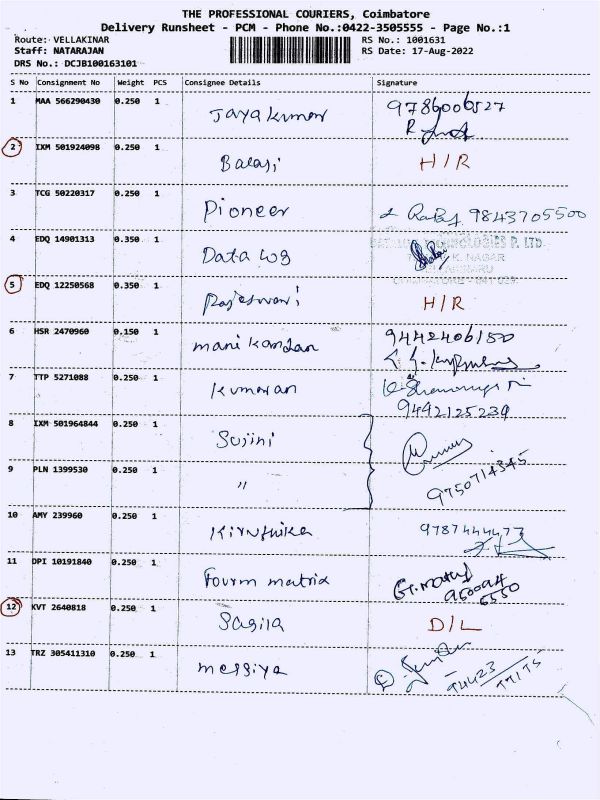 THE PROFESSIONAL COURIERS, Coimbatore
Delivery Runsheet - PCM - Phone No.:0422-3505555 - Page No.:1
Route: VELLAKINAR RS No.: 1001631
Staff: NATARAJAN RS Date: 17-Aug-2022
DRS No.: DCJB100163101
S No Consignment No Weight PCS Consignee Details Signature
1 MAA 566290430 0.250 1 Jayakumar 9786006527
2 IXM 501924098 0.250 1 Balaji H/R
3 TCG 50220317 0.250 1 Pioneer 9843705500
4 EDQ 14901313 0.350 1 Data log
5 EDQ 12250568 0.350 1 Rajeswari H/R
6 HSR 2470960 0.150 1 mani kandan 9442406150
7 TTP 5271088 0.250 1 Kumaran
9492125239
8 IXM 501964844 0.250 1 Sujini
9 PLN 1399530 0.250 1 " 9750714345
10 AMY 239960 0.250 1 Kiruthika 9787444477
11 DPI 10191840 0.250 1 Fourm matrix
12 KVT 2640818 0.250 1 Sasila D/L
13 TRZ 305411310 0.250 1 messiya